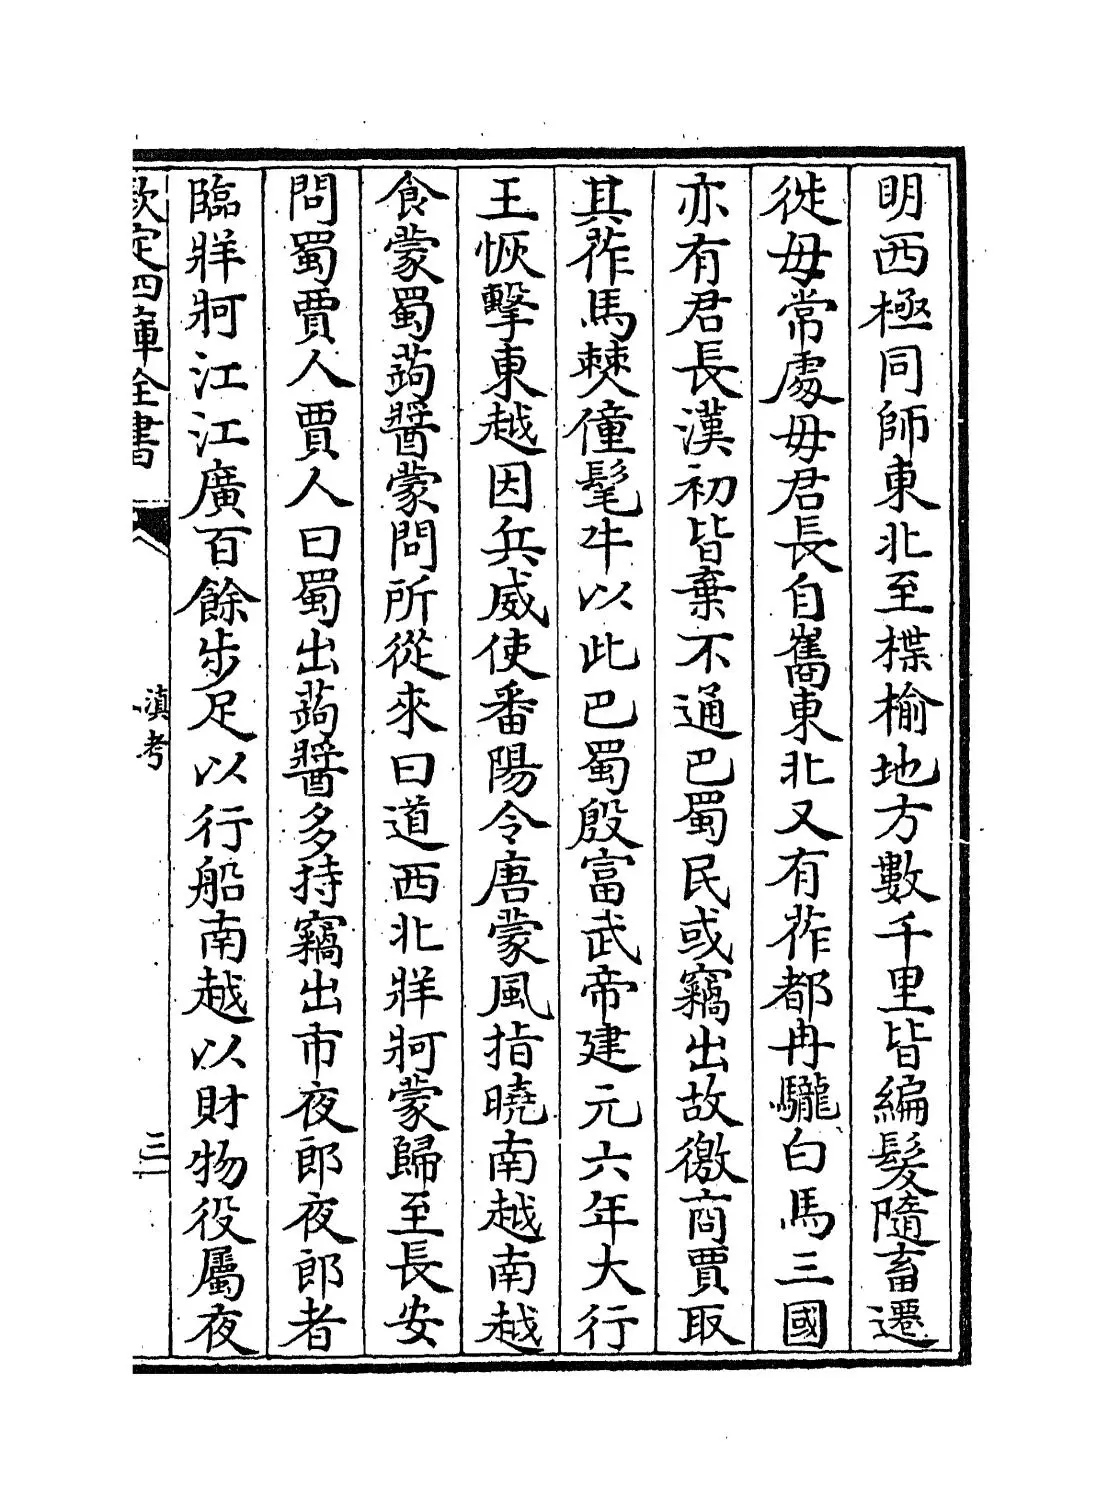 明西極同師東北至楪榆地方數千里皆編髮隨畜遷
徙毋常處毋君長自嶲東北又有莋都冉䮾白馬三國
亦有君長漢初皆棄不通巴蜀民或竊出故徼商賈取
其莋馬僰僮髦牛以此巴蜀殷富武帝建元六年大行
王恢擊東越因兵威使番陽令唐蒙風指曉南越南越
食蒙蜀蒟醬蒙問所從來曰道西北牂牁蒙歸至長安
問蜀賈人賈人曰蜀出蒟醬多持竊出市夜郎夜郎者
臨牂牁江江廣百餘步足以行船南越以財物役屬夜
欽定四庫全書
滇考
三